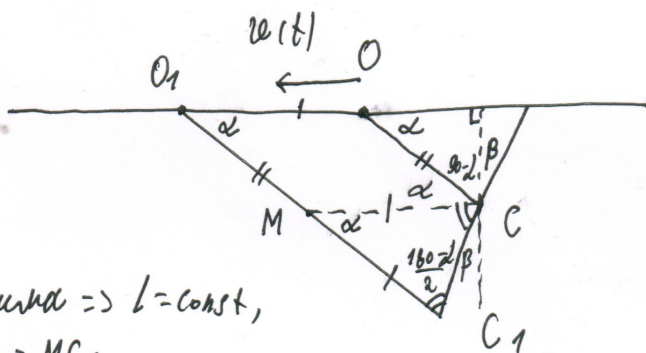 v(t)
O₁ O
α α 90-α β
M α α C
180-α
2 β
C₁
=> L = const,
=> MC